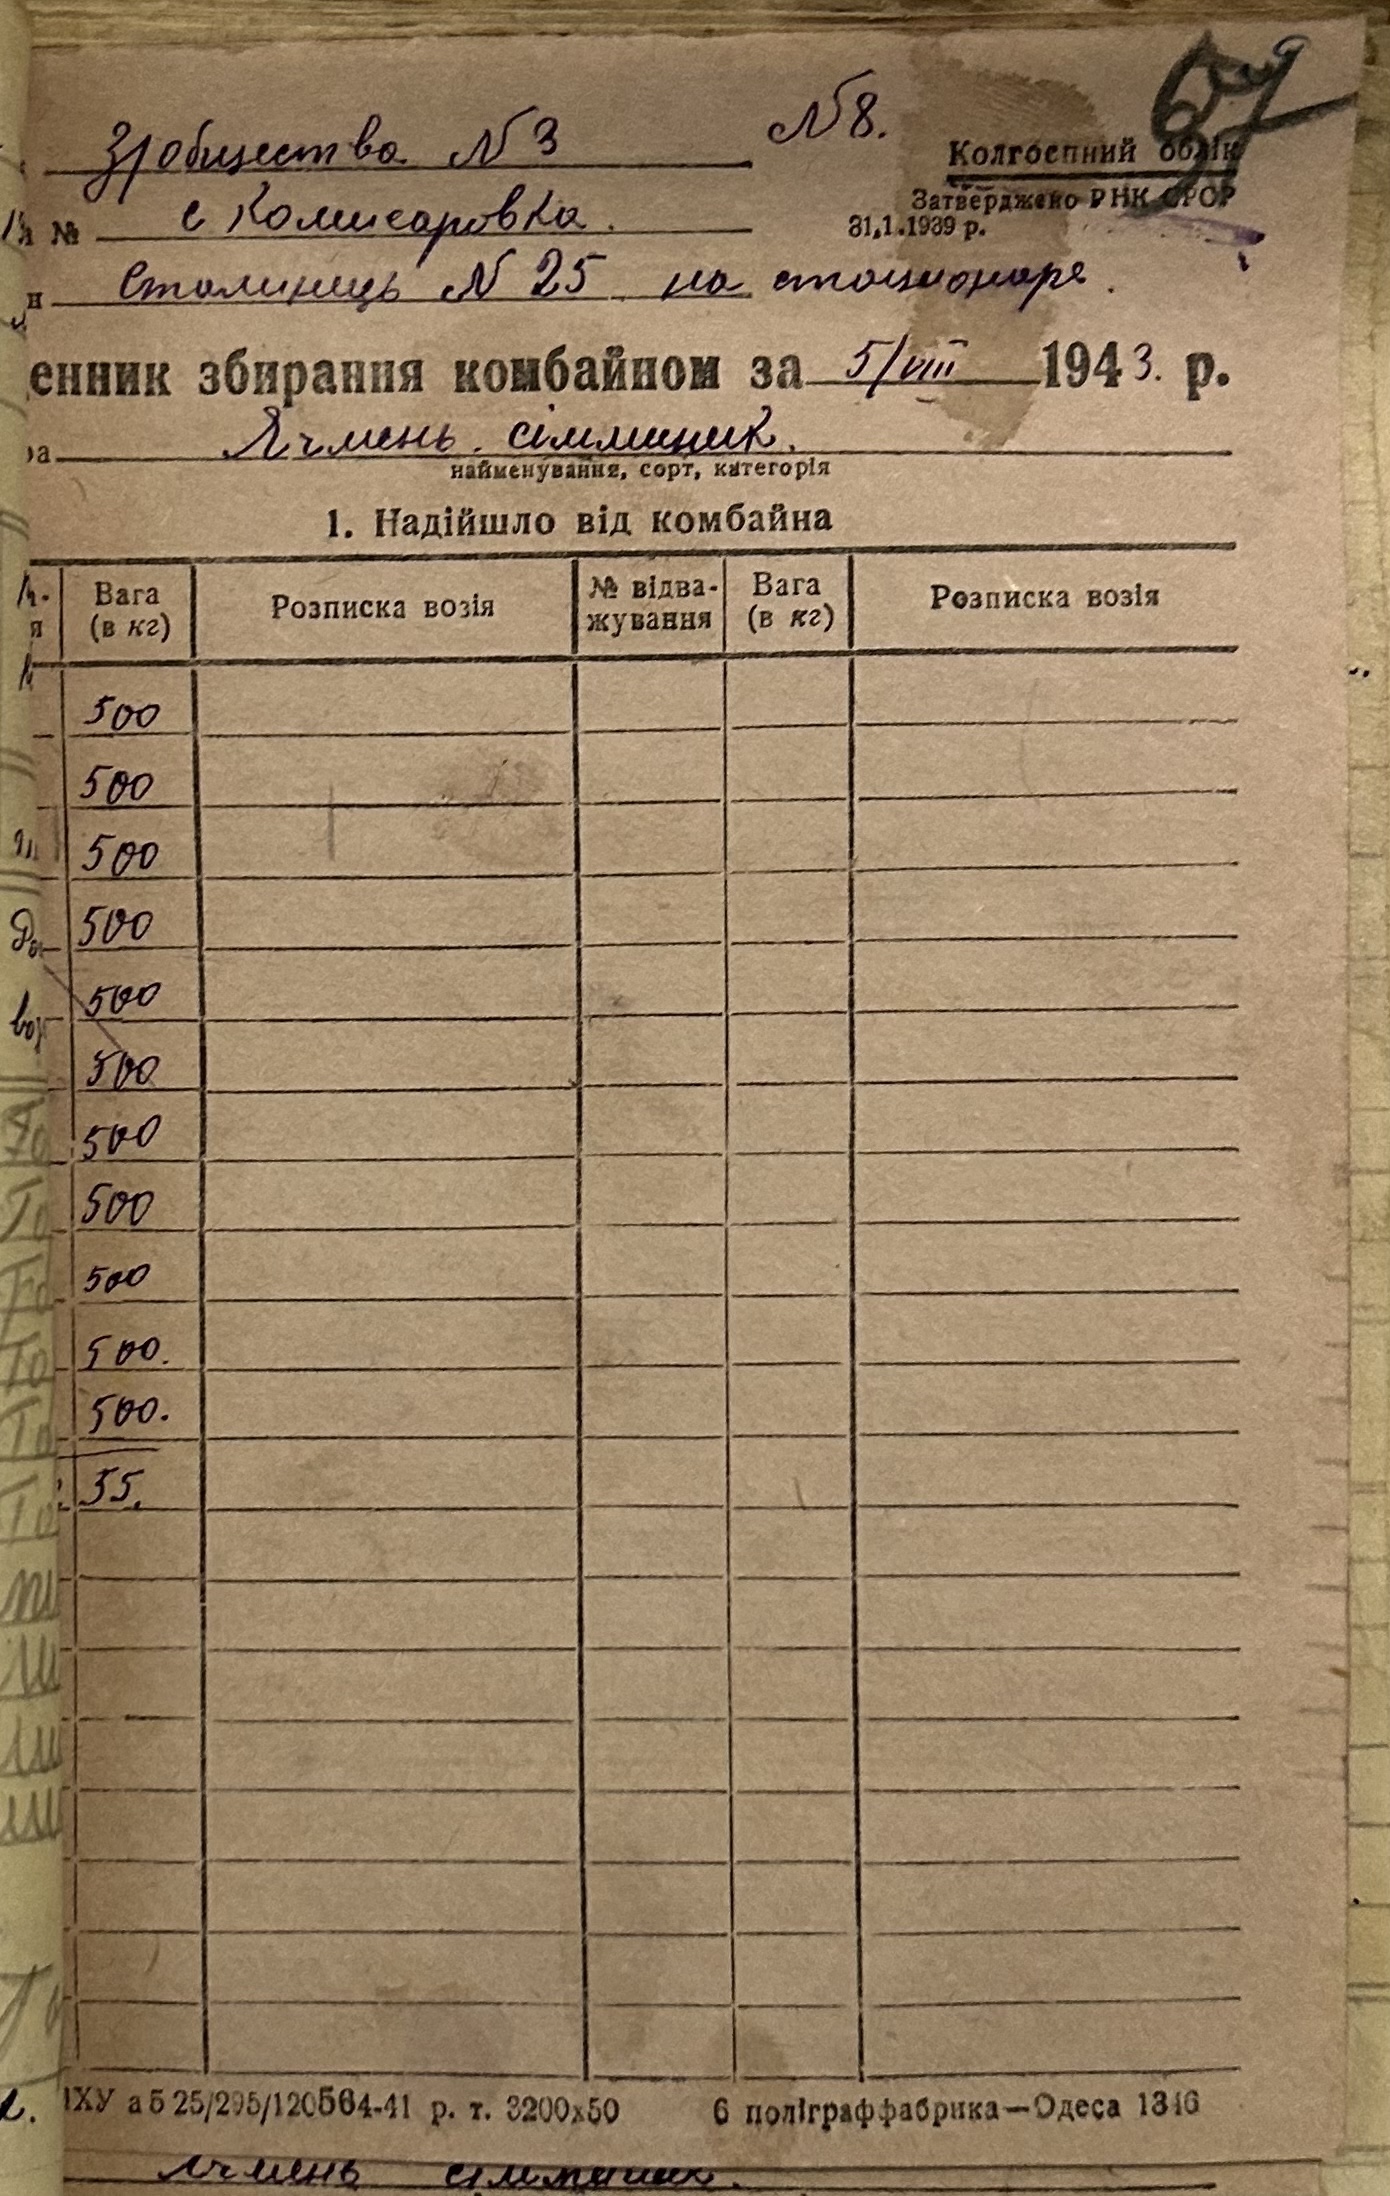 N 8.
Зробщество N 3
Колгоспний облік
Затверджено РНК СРСР
31.1.1939 р.
№ с Комисаровка.
н Сталинець N 25 на стационаре.
енник збирання комбайном за 5/VIII 1943. р.
ра Ячмень.
найменування, сорт, категорія
1. Надійшло від комбайна
я Вага (в кг) Розписка возія № відва-жування Вага (в кг) Розписка возія
500
500
500
500
500
500
500
500
500
500.
500.
55.
ІХУ аб 25/295/120564-41 р. т. 3200х50 6 поліграффабрика—Одеса 1346
Ячмень